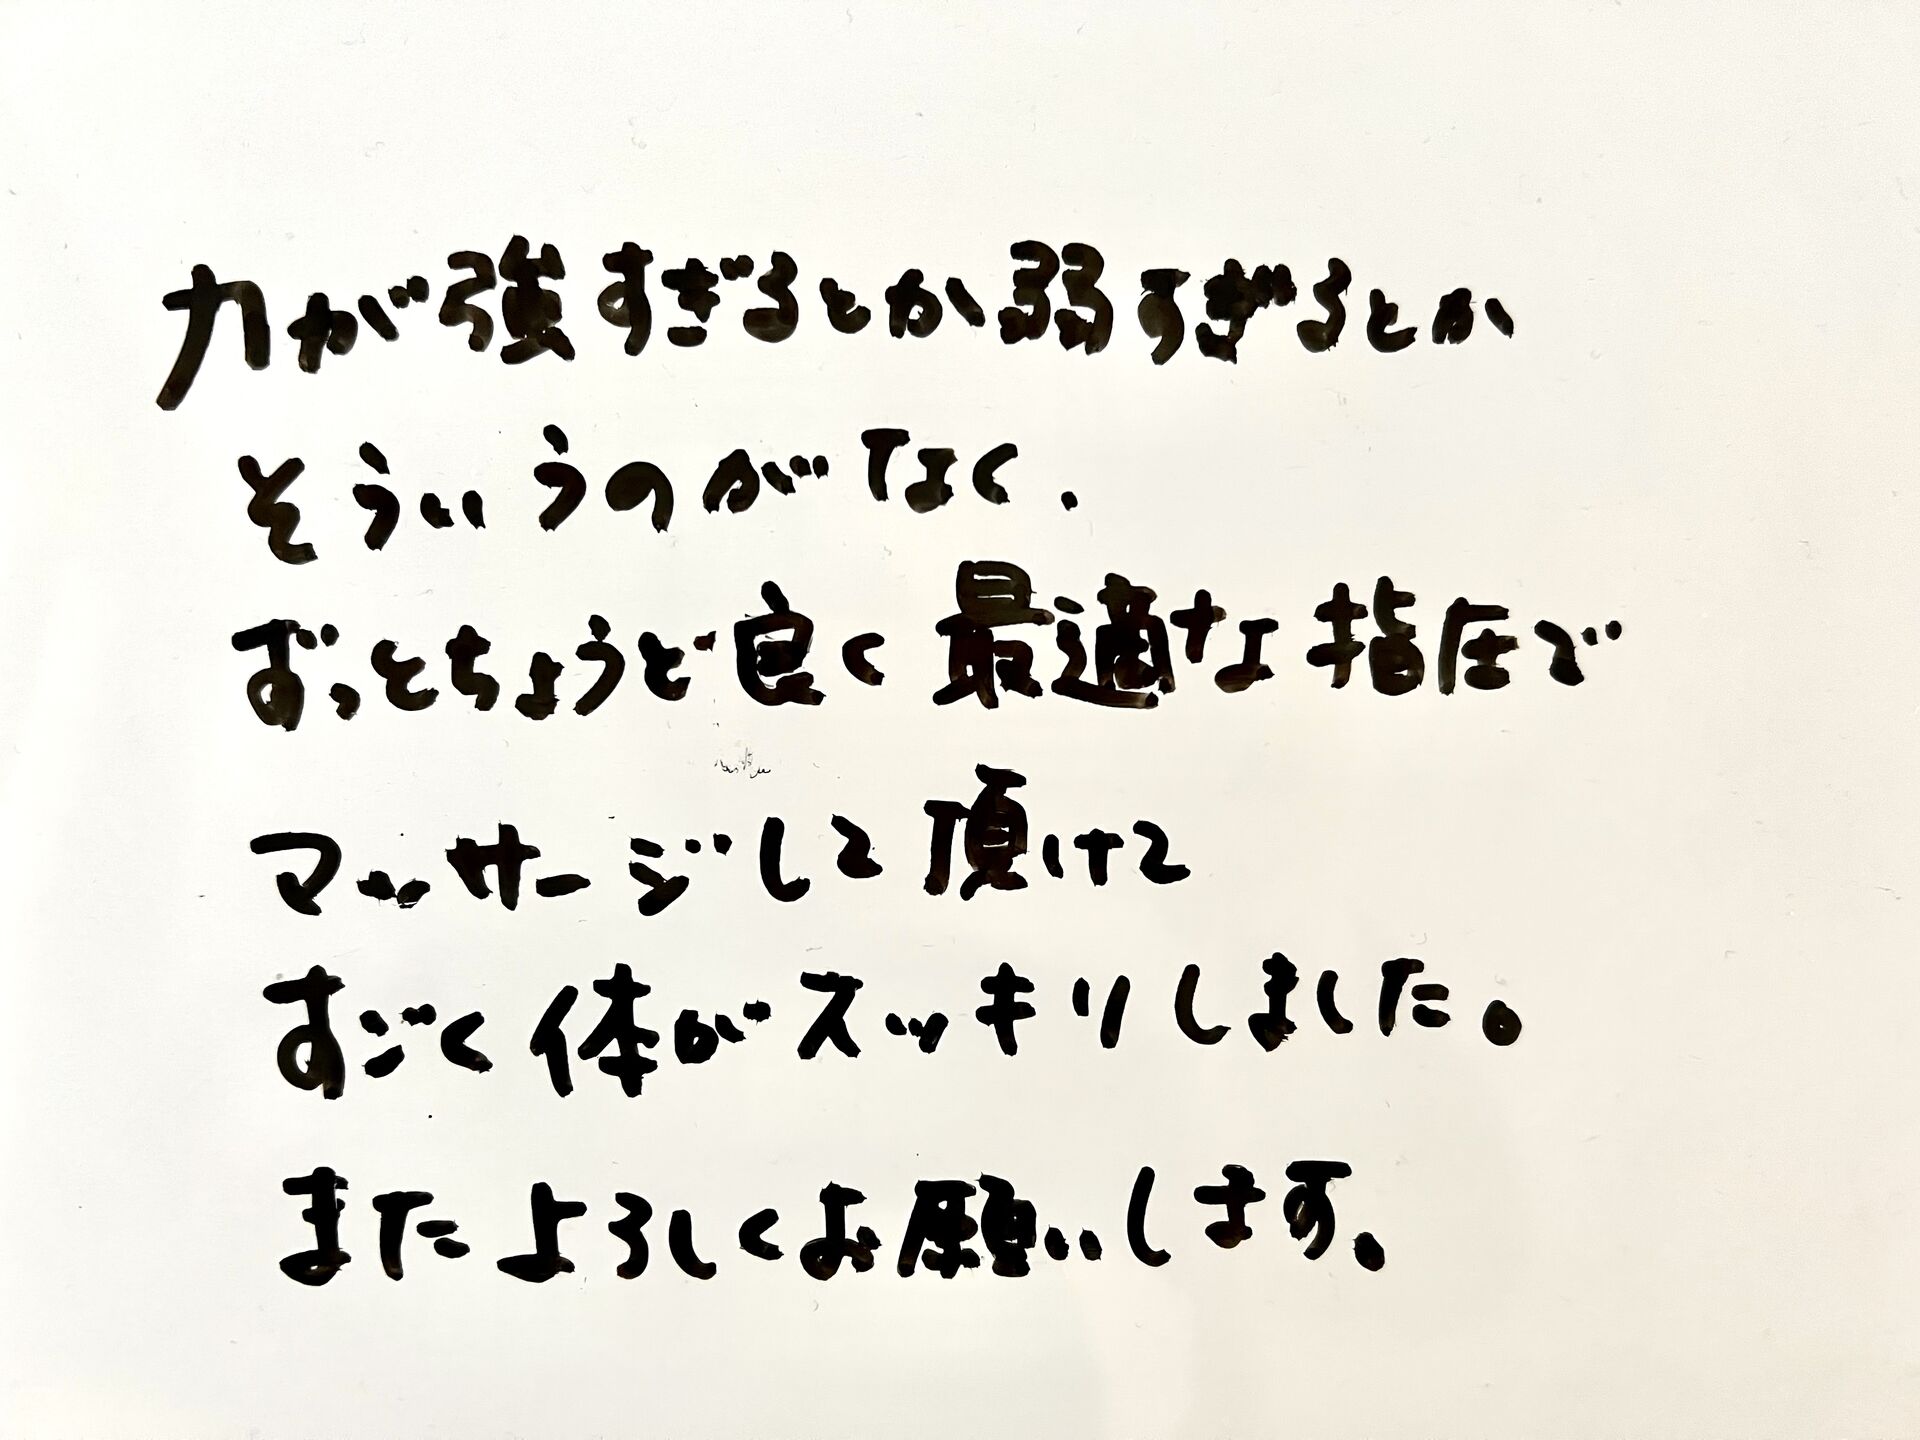 力が強すぎるとか弱すぎるとか
そういうのがなく、
ずっとちょうど良く最適な指圧で
マッサージして頂けて
すごく体がスッキリしました。
またよろしくお願いします。